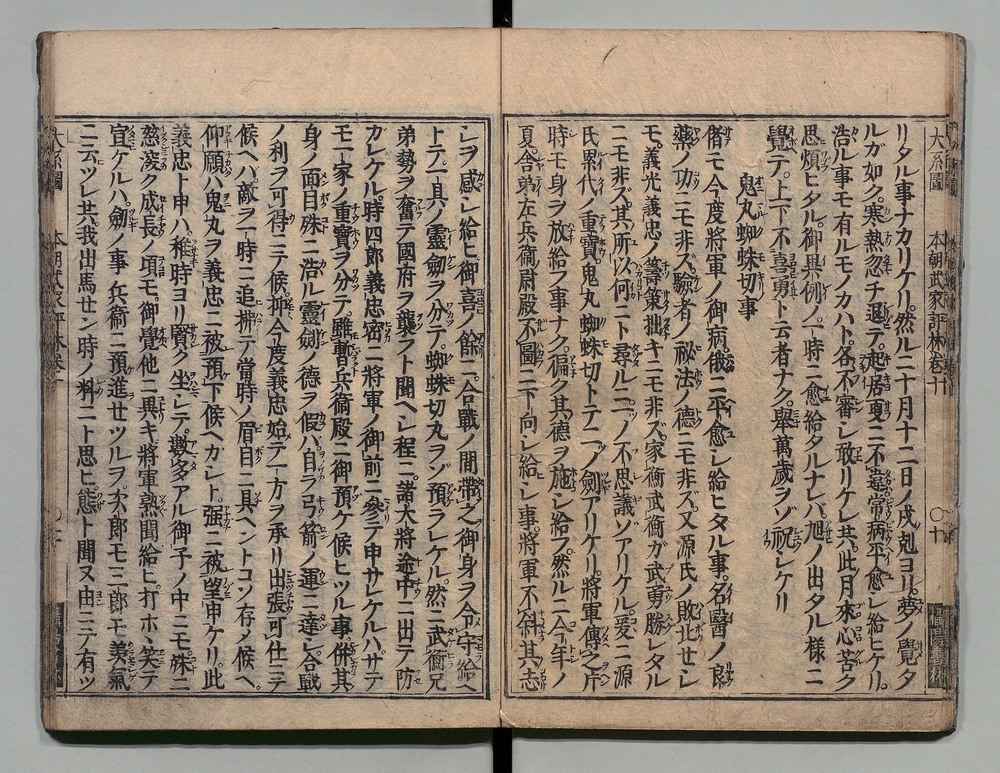 リタル事ナカリケリ。然ルニ十月十二日ノ戌剋ヨリ。夢ノ覺タ
ルガ如ク。寒熱忽チ退テ。起居更ニ不尋常病平愈シ給ヒケリ。
浩ル事モ有ルモノカハト。各不審シ敢リケレ共。此月來心苦ク
思煩ヒタル。御異例ノ一時ニ愈給タルナレバ。旭ノ出タル様ニ
覺テ。上下不喜勇ト云者ナク。擧萬歳ヲゾ祝シケリ
鬼丸蜘蛛切事
偖モ今度將軍ノ御病俄ニ平愈シ給ヒタル事。名醫ノ良
藥ノ功ニモ非ズ。驗者ノ祕法ノ德ニモ非ズ。又源氏ノ敗北セシ
モ。義光義忠ノ籌策拙キニモ非ズ。家衡武衡ガ武勇勝レタル
ニモ非ズ。其所以何ニト尋ルニ。一ノ不思議ゾアリケル。爰ニ源
氏累代ノ重寶鬼丸蜘蛛切トテ二ノ劍アリケリ。將軍傳之片
時モ身ヲ放給フ事ナク。偏ク其德ヲ施シ給フ。然ルニ今年ノ
夏。舎弟左兵衞尉殿不圖ニ下向シ給シ事。將軍不斜其志
シヲ感シ給ヒ御喜ノ餘ニ。合戰ノ間帶之御身ヲ令守給ヘ
トテ。一具ノ靈劍ヲ分テ。蜘蛛切丸ヲゾ預ラレケル。然ニ武衡兄
弟勢ヲ奮テ國府ヲ襲フト聞ヘシ程ニ。諸大將途中ニ出テ防
ガレケル。時四郎義忠密ニ將軍ノ御前ニ參テ申サレケルハ。サテ
モ二家ノ重寶ヲ分テ。雖暫兵衞殿ニ御預ケ候ヒツル事。併其
身ノ面目殊ニ浩ル靈劍ノ德ヲ假バ。自ラ弓箭ノ運ニ達シ。合戰
ノ利ヲ可得ニテ候。抑今度義忠始テ一方ヲ承リ出張可仕ニテ
候ヘハ。敵ヲ一時ニ追拂テ當時ノ眉目ニ具ヘントコソ存ノ候ヘ。
仰願ハ鬼丸ヲ義忠ニ被預下候ヘカシト。强ニ被望申ケリ。此
義忠ト申ハ。稚時ヨリ賢ク坐シテ。數多アル御子ノ中ニモ。殊ニ
慈凌ク成長ノ頃モ。御覺他ニ異キ。將軍熟聞給ヒ。打ホヽ笑テ
宣ケルハ。劍ノ事兵衞ニ預進セツルヲ。次郎モ三郎モ羨氣
ニ云ツレ共。我出馬セン時ノ料ニト思ヒ。態ト聞ヌ由ニテ有ツ
大系圖
本朝武家評林巻十
〇十
大系圖
本朝武家評林巻十